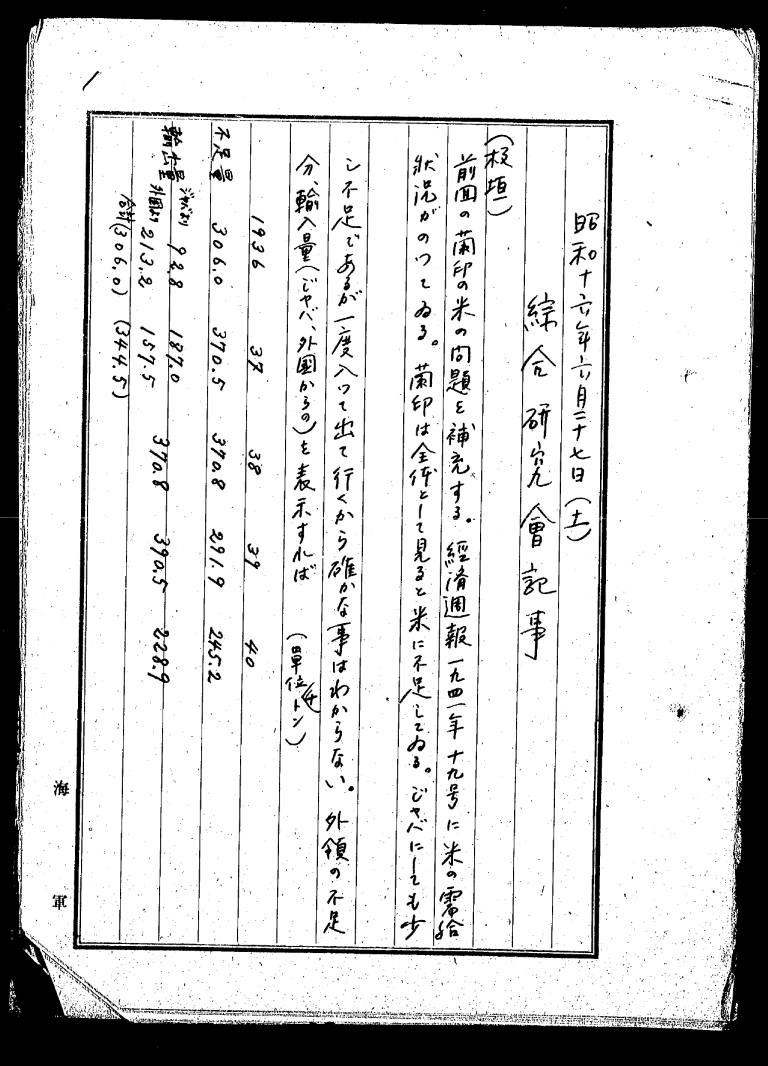 昭和十六年六月二十七日(土)
綜合研究會記事
(板垣)
前回の蘭印の米の問題を補充する。經濟週報一九四一年十九号に米の需給
狀況がのつてゐる。蘭印は全体として見ると米に不足してゐる。ジャバにしても少
し不足であるが一度入つて出て行くから確かな事はわからない。外領の不足
分、輸入量(ジャバ、外國からの)を表示すれば (單位千トン)
1936 37 38 39 40
不足量 306.0 370.5 370.8 291.9 245.2
ジャバより 92.8 187.0
外國より 213.2 157.5 370.8 390.5 228.9
合計(306.0) (344.5)
海軍